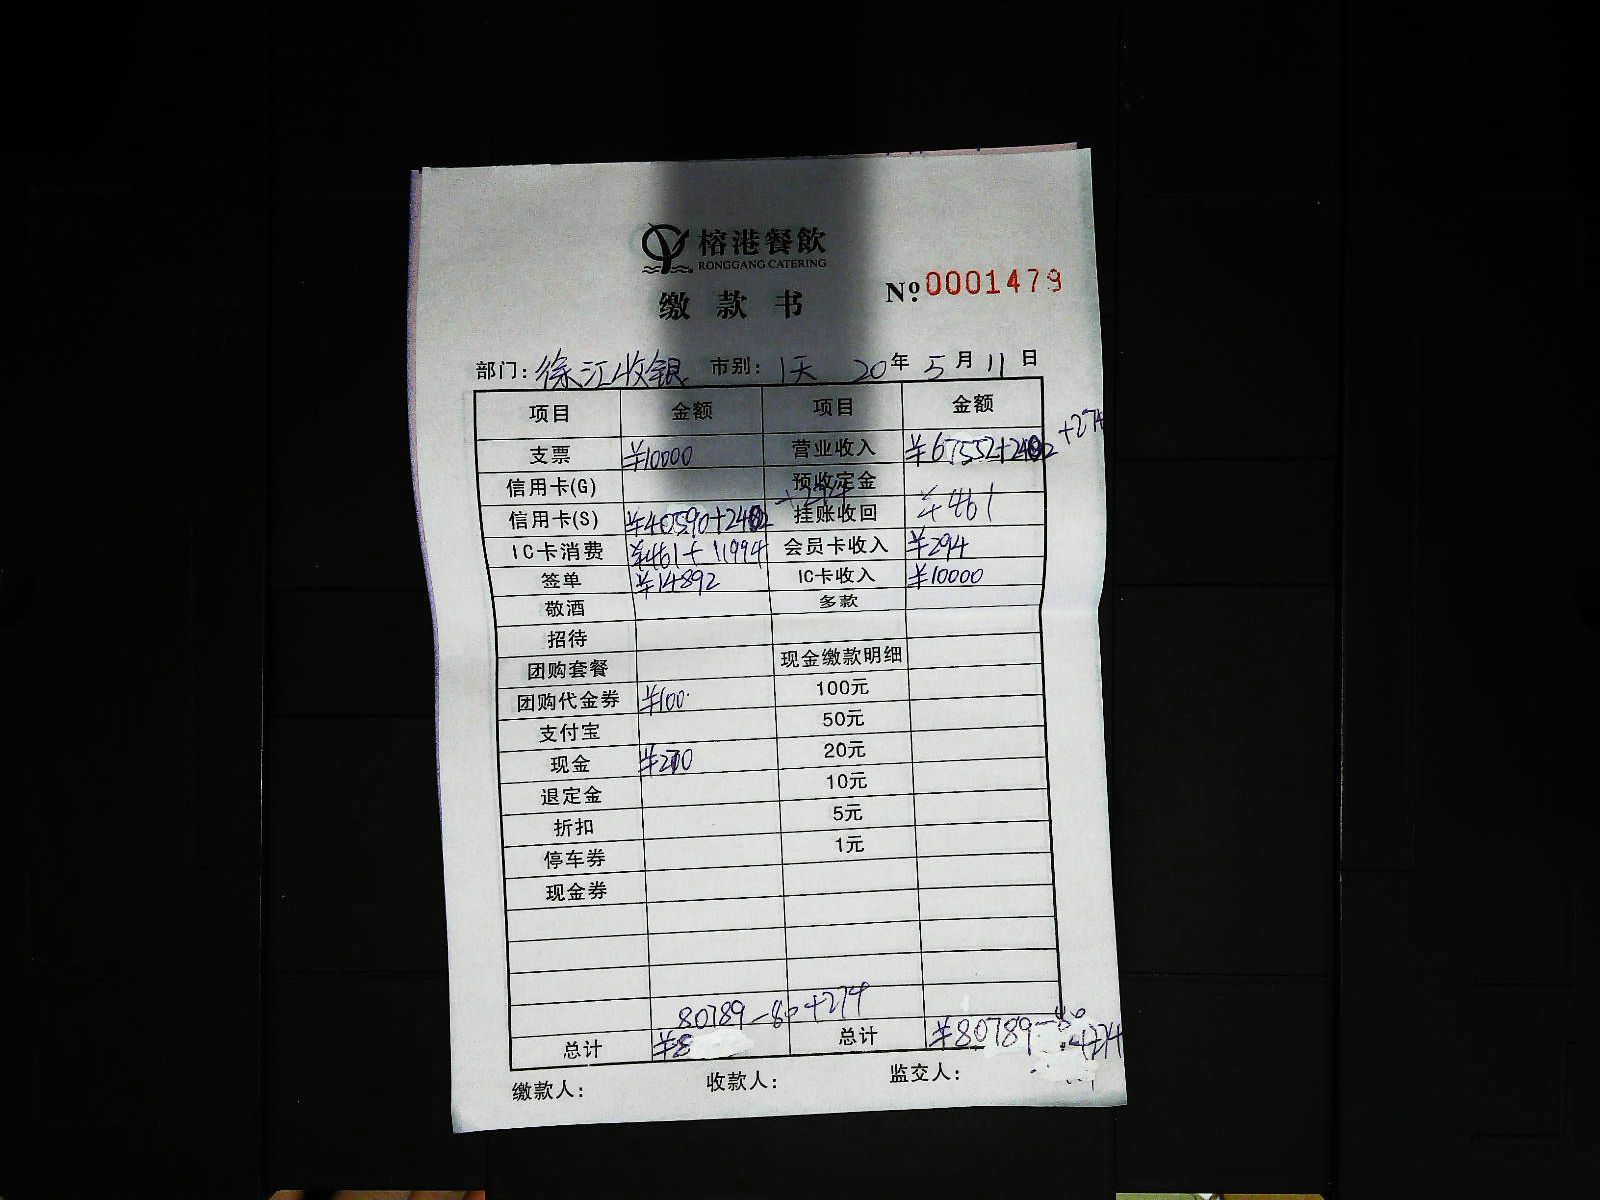 榕港餐飲
RONGGANG CATERING
缴款书 Nº 0001479
部门: 徐江收银 市别: 1天 20年5月11日
项目 金额 项目 金额
支票 ¥10000 营业收入 ¥67552+2402 +274
信用卡(G) 预收定金
信用卡(S) ¥40590+2402 +274 挂账收回 ¥461
IC卡消费 ¥461+11994 会员卡收入 ¥294
签单 ¥14892 IC卡收入 ¥10000
敬酒 多款
招待
团购套餐 现金缴款明细
团购代金券 ¥100 100元
支付宝 50元
现金 ¥270 20元
退定金 10元
折扣 5元
停车券 1元
现金券
80789-80+274
总计 ¥8 总计 ¥80789-80+274
缴款人: 收款人: 监交人: